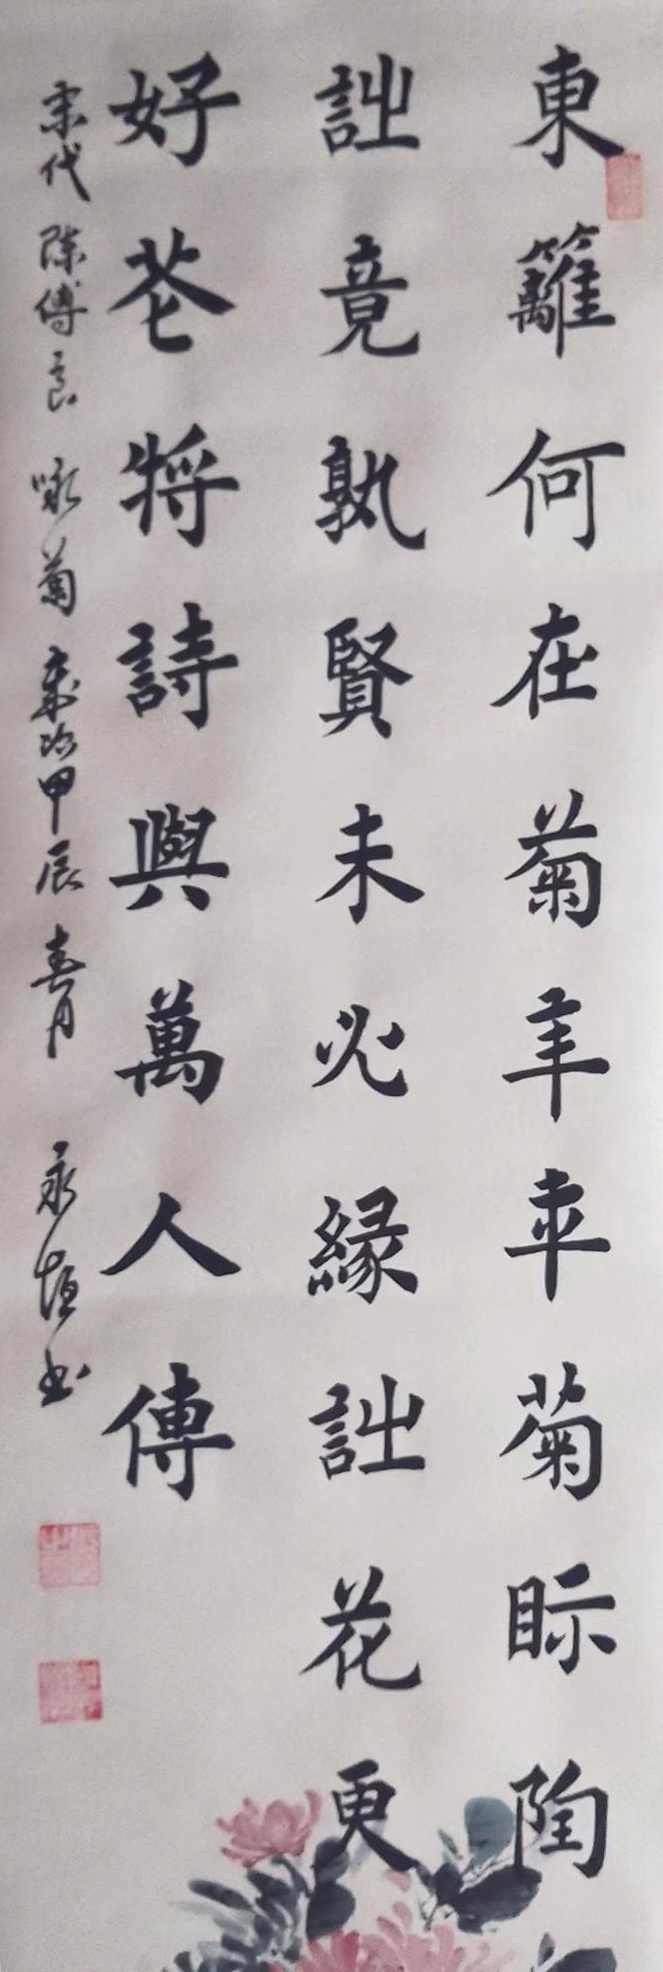 東籬何在菊年年菊眎陶
詘竟孰賢未必緣詘花更
好芲將詩與萬人傳
宋代 陈傅良 咏菊 歲次甲辰 春月 永恒书